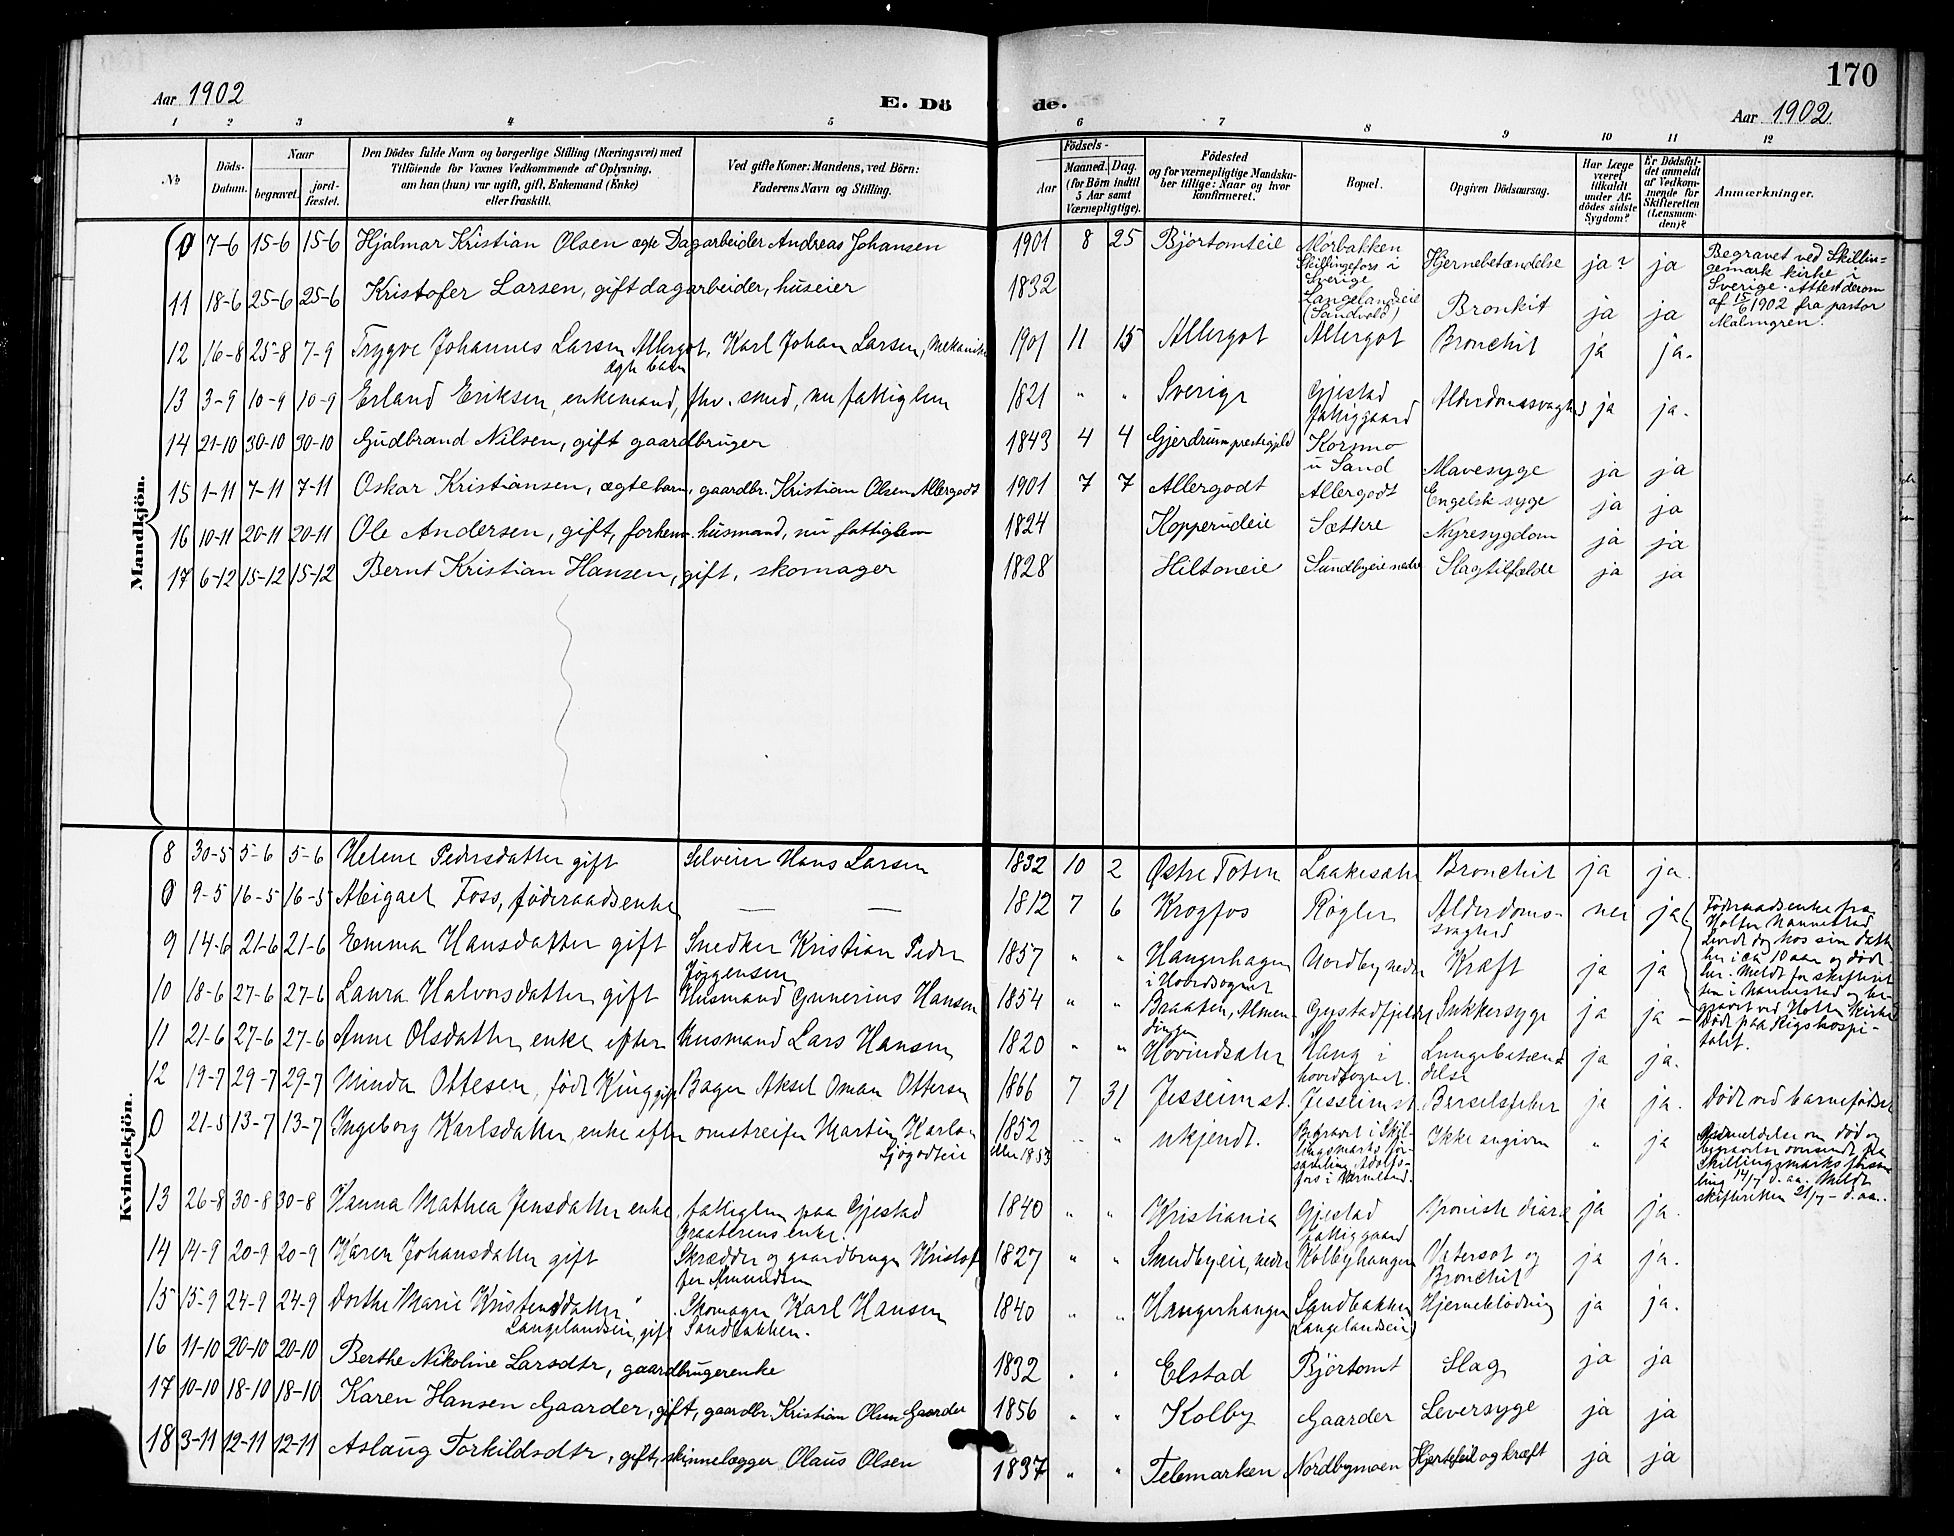 170
Aar 1902
E. Dö de.
Aar 1902
1 2 3 4 5 6 7 8 9 10 11 12
No
Döds-Datum.
Naar
begravet.
jord-fæstet.
Den Dödes fulde Navn og borgerlige Stilling (Næringsvei) med
Tilföiende for Voxnes Vedkommende af Oplysning,
om han (hun) var ugift, gift, Enkemand (Enke)
eller fraskilt.
Ved gifte Koner: Mandens, ved Börn:
Faderens Navn og Stilling.
Födsels-
Aar
Maaned. Dag.
(for Börn indtil
5 Aar samt
Værnepligtige).
Födested
og for værnepligtige Mandska-
ber tillige: Naar og hvor
konfirmeret.
Bopæl.
Opgiven Dödsaarsag.
Har Læge
været
tilkaldt
under Af-
dödes sidste
Sygdom?
Er Dödsfal-
det anmeldt
af Vedkom-
mende for
Skifteretten
(Lensman-
den)?
Anmærkninger.
Mandkjön.
0 7-6 15-6 15-6 Hjalmar Kristian Olsen ægte Dagarbeider Andreas Johansen 1901 8 25 Bjørtomteie Mørbakken Skillingsfors i Sverige Hjernebetændelse ja? ja
Begravet ved Skillin-
gemark kirke i
Sverige. Attest derom
af 15/6 1902 fra pastor
Malmgren.
11 18-6 25-6 25-6 Kristofer Larsen, gift dagarbeider, huseier 1832 Langelandseie (Sandvold) Bronkit ja ja
12 16-8 25-8 7-9 Trygve Johannes Larsen Allergot, Karl Johan Larsen, Mekaniker 1901 11 15 Allergot Allergot Bronchit ja ja.
ægte barn
13 3-9 10-9 10-9 Erland Eriksen, enkemand, fhv. smed, nu fattiglem 1821 " " Sverige Gjestad fattiggaard Alderdomssvaghed ja ja.
14 21-10 30-10 30-10 Gudbrand Nilsen, gift gaardbruger 1843 4 4 Gjerdrum prestegjeld Kormo u Sand Mavesyge ja ja
15 1-11 7-11 7-11 Oskar Kristiansen, ægte barn, gaardbr. Kristian Olsen Allergodt 1901 7 7 Allergodt Allergodt Engelsk syge ja ja
16 10-11 20-11 20-11 Ole Andersen, gift, forhenv. husmand, nu fattiglem 1824 Kopperudeie Sættre Nyresygdom ja ja
17 6-12 15-12 15-12 Bernt Kristian Hansen, gift, skomager 1828 Hiltoneie Sundbyeie nedre Slagtilfælde ja ja
Kvindekjön.
8 30-5 5-6 5-6 Helene Pedersdatter gift Selveier Hans Larsen 1832 10 2 Østre Toten Laakesæter Bronchit ja ja.
0 9-5 16-5 16-5 Abigael Foss, føderaadsenke — — 1812 7 6 Krogfos Røgler Alderdoms-svaghed nei ja
Føderaadsenke fra
Holter Nannestad
Levede dog hos sin datter
her i ca 10 aar og døde
her. Meldt for skifteret
ten i Nannestad og be-
gravet ved Holter kirke
9 14-6 21-6 21-6 Emma Hansdatter gift Snedker Kristian Peder Jørgensen 1857 " " Hangerhagen i Hovedsognet Nordby nedre Kræft ja ja
10 18-6 27-6 27-6 Laura Halvorsdatter gift Husmand Gunerius Hansen 1854 " " Braaten, Almen-dingen Gjestadfjeldet Sukkersyge ja ja –
Døde paa Rigshospi-
talet.
11 21-6 27-6 27-6 Anne Olsdatter, enke efter Husmand Lars Hansen 1820 " " Hovindsæter Haug i hovedsognet. Lungebetænd delse ja ja.
12 19-7 29-7 29-7 Minda Ottesen, født King gift Bager Aksel Oman Ottesen 1866 7 31 Jessheim st. Jessheim st. Barselsfeber ja ja. Døde ved barnefødsel
0 21-5 13-7 13-7 Ingeborg Karlsdatter, enke efter omstreifer Martin Karlsen Sjøgodteie 1852 eller 1853 " " ukjendt. Begravet i Skil-lingsmarks for-samling, Adolfs-fors i Værmland. Ikke angiven " ja
Anmeldelse om død og
begravelse oversendt fra
Skillingsmarks forsam
ling 14/7 d. aa. Meldt
skifteretten 21/7 - d. aa.
13 26-8 30-8 30-8 Hanna Mathea Jensdatter enke, fattiglem paa Gjestad Graaterens enke. 1840 " " Kristiania Gjestad fattiggaard Kronisk diaré ja ja.
14 14-9 20-9 20-9 Karen Johansdatter gift Skrædder og gaardbruger Kristof fer Amundsen 1827 " " Sundbyeie, nedre Kolbyhangen Vatersot og Bronchit ja ja.
15 15-9 24-9 24-9 Dorthe Marie Kristensdatter Langelandseie, gift Skomager Karl Hansen Sandbakken. 1840 " " Hangerhangen Sandbakken (Langelandseie) Hjerneblødning ja ja.
16 11-10 20-10 20-10 Berthe Nikoline Larsdtr, gaardbrugerenke 1832 " " Elstad Bjørtomt Slag ja ja
17 10-10 18-10 18-10 Karen Hansen Gaarder, gift, gaardbr. Kristian Olsen Gaarder 1856 " " Kolby Gaarder Leversyge ja ja
18 3-11 12-11 12-11 Aslaug Torkildsdtr, gift, skinnelægger Olaus Olsen 1837 " " Telemarken Nordbymoen Hjertefeil og kræft ja ja